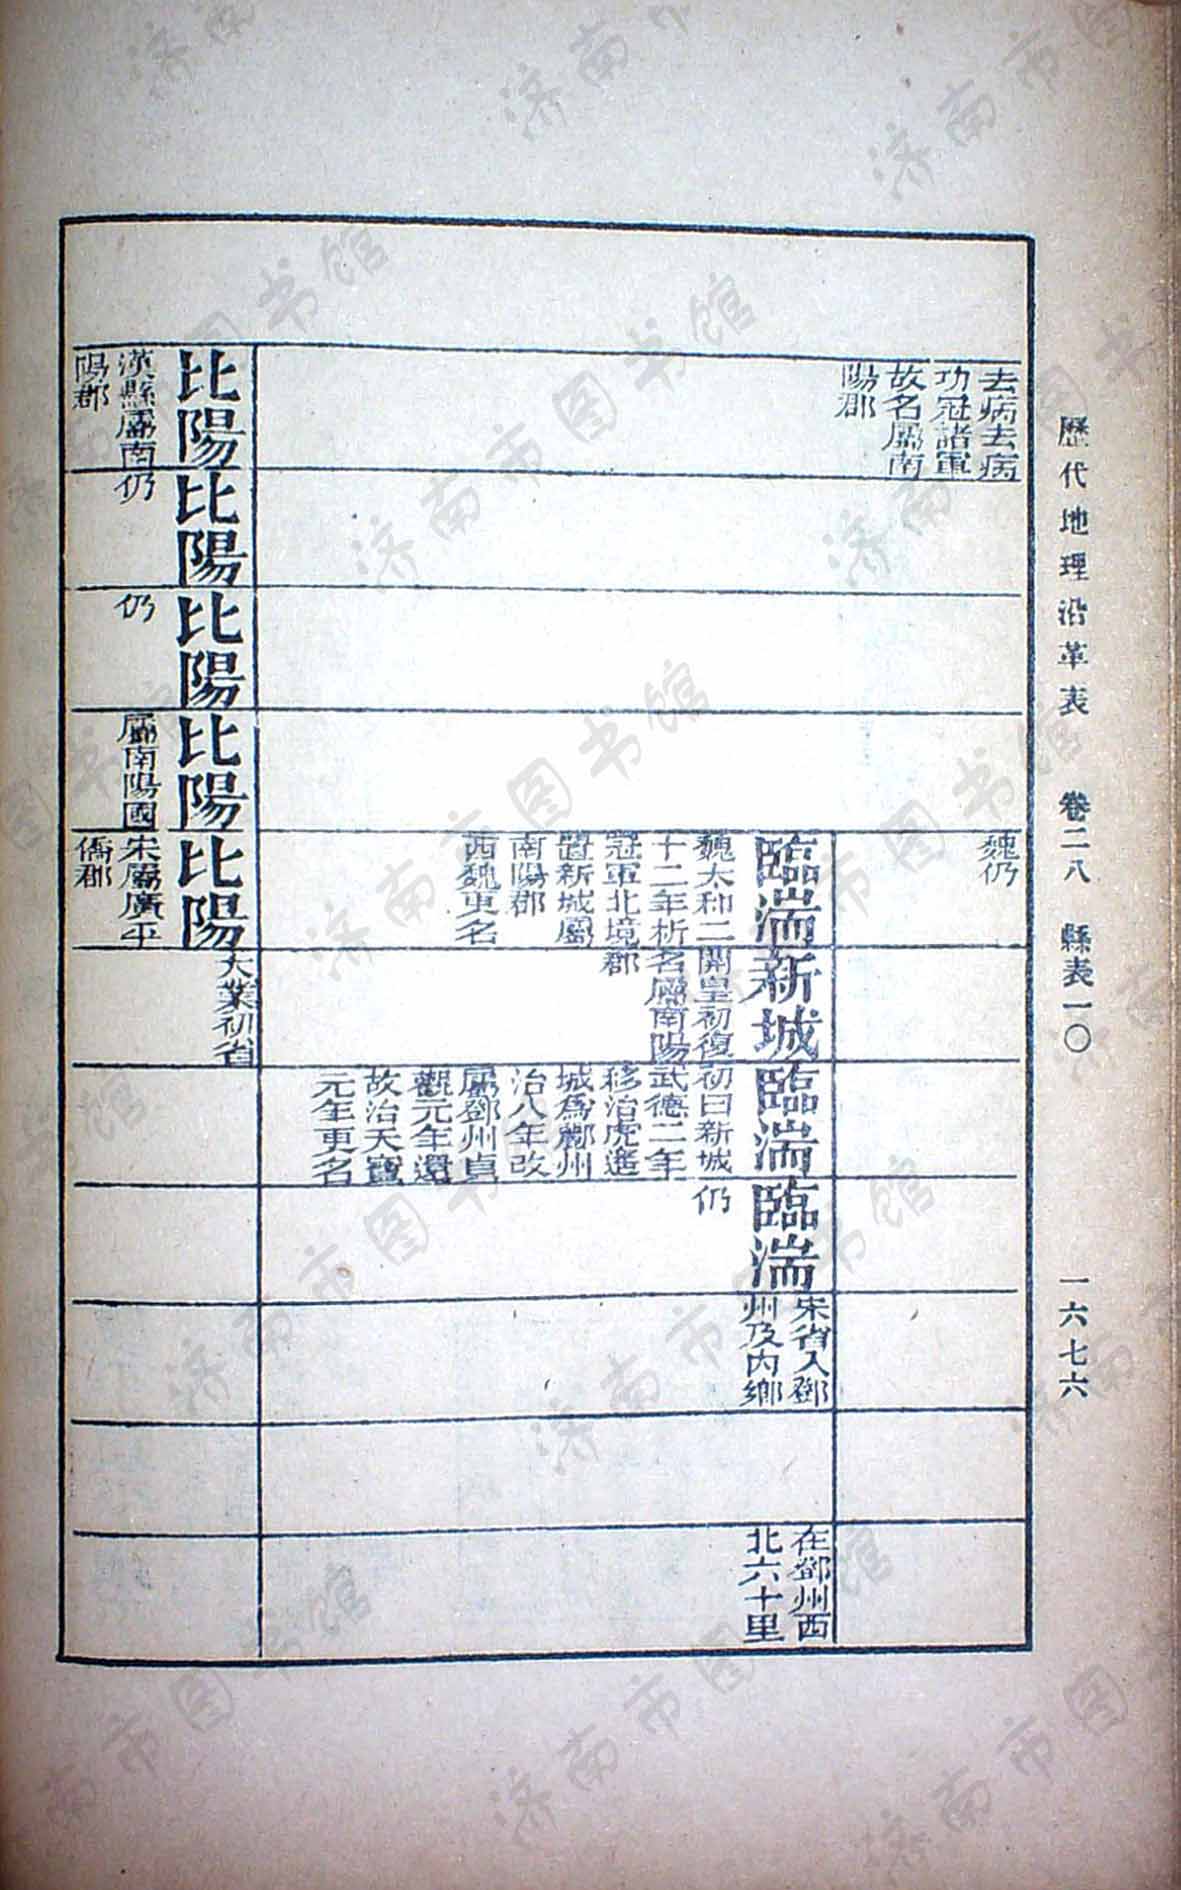 歷代地理沿革表 卷二八 縣表一〇 一六七六
去病去病
功冠諸軍
故名屬南
陽郡
魏仍
臨湍
魏太和二
十二年析
冠軍北境
置新城屬
南陽郡
西魏更名
新城
開皇初復
名屬南陽
郡
臨湍
初曰新城
武德二年
移治虎遙
城為酈州
治八年改
屬鄧州貞
觀元年還
故治天寶
元年更名
臨湍
仍
宋省入鄧
州及內鄉
在鄧州西
北六十里
比陽
漢縣屬南
陽郡
比陽
仍
比陽
仍
比陽
屬南陽國
比陽
宋屬廣平
僑郡
大業初省
济南市图书馆